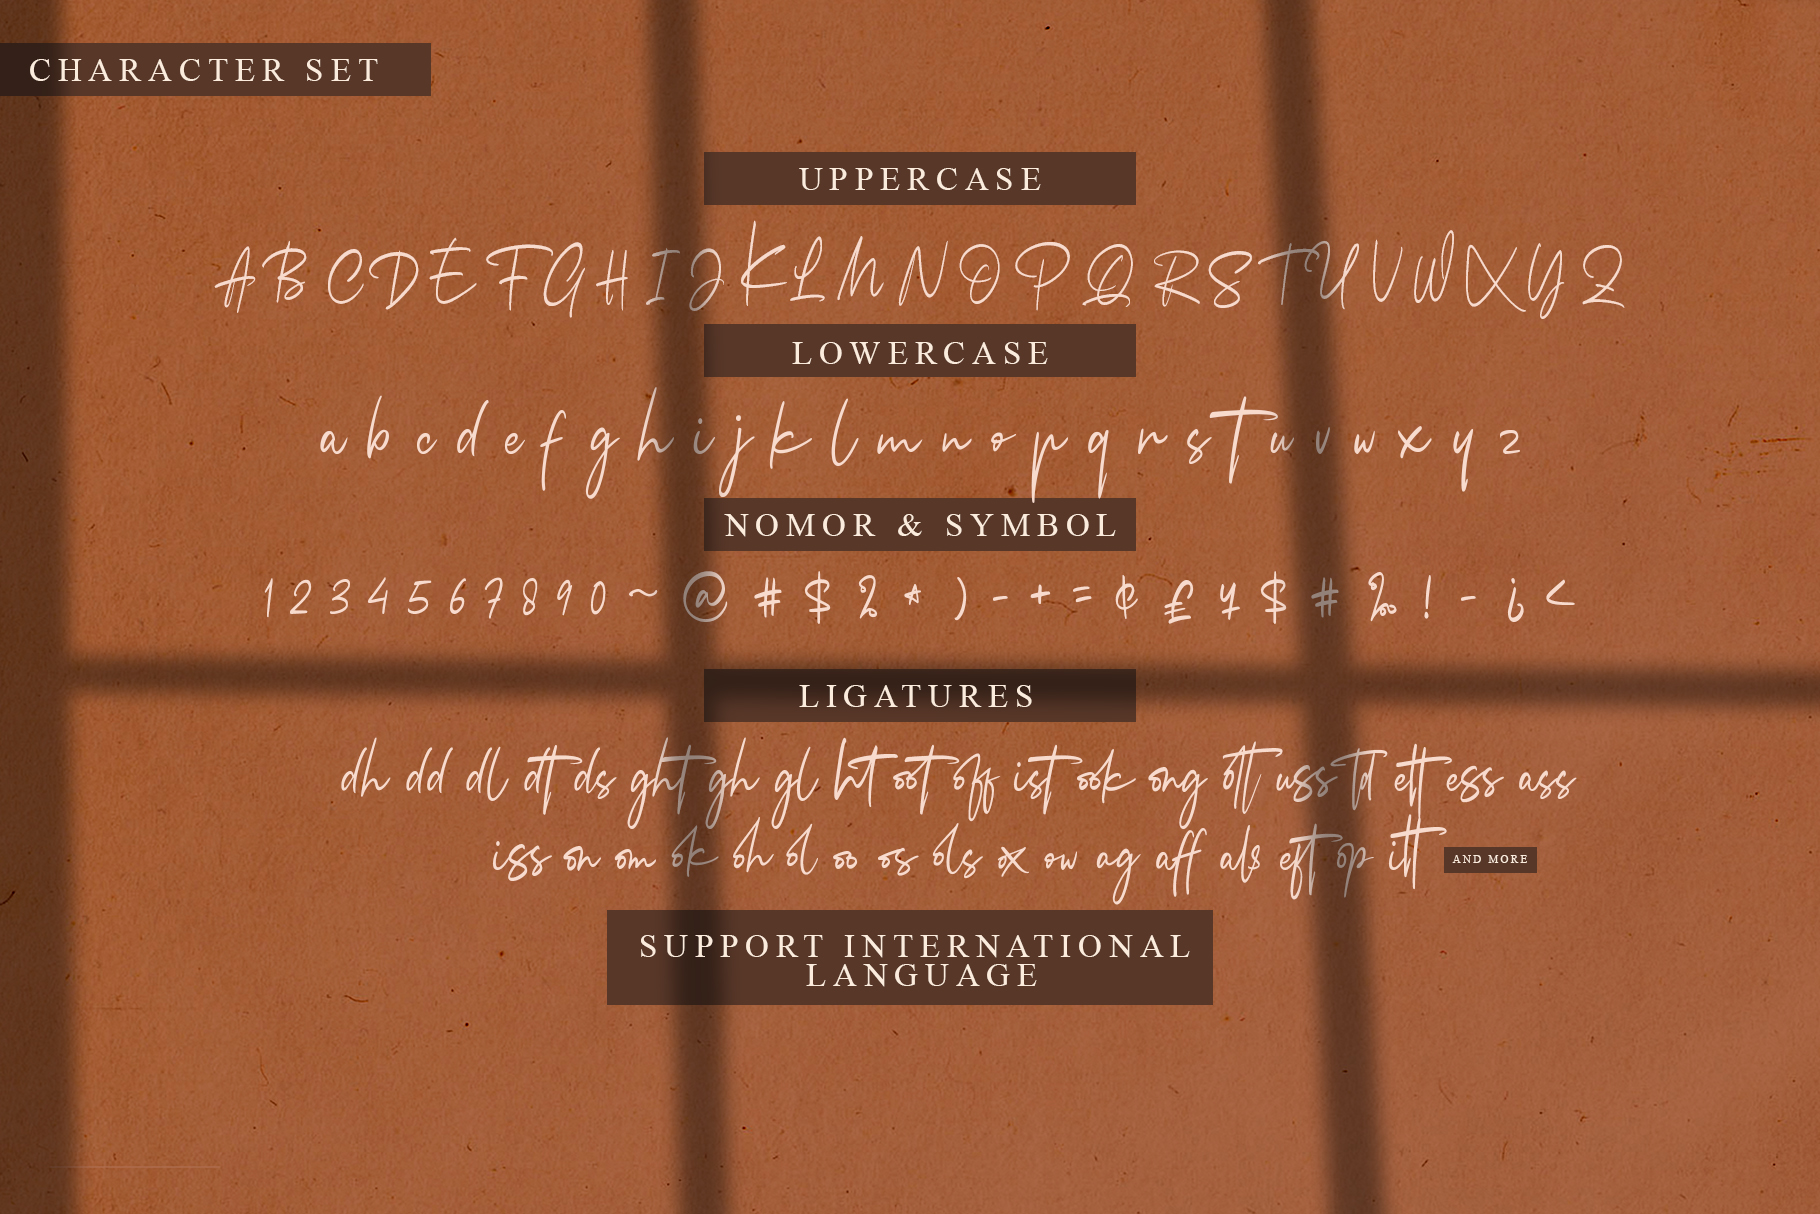 CHARACTER SET
UPPERCASE
A B C D E F G H I J K L M N O P Q R S T U V W X Y Z
LOWERCASE
a b c d e f g h i j k l m n o p q r s t u v w x y z
NOMOR & SYMBOL
1 2 3 4 5 6 7 8 9 0 ~ @ # $ * ) - + = ¢ £ $ # ! - ¿ <
LIGATURES
dh dd dl dt ds ght gh gl ht oot off ist ook ong ott uss td ett ess ass
iss on om ok oh ol oo os ols ox ow ag aff als eft op itt
AND MORE
SUPPORT INTERNATIONAL
LANGUAGE